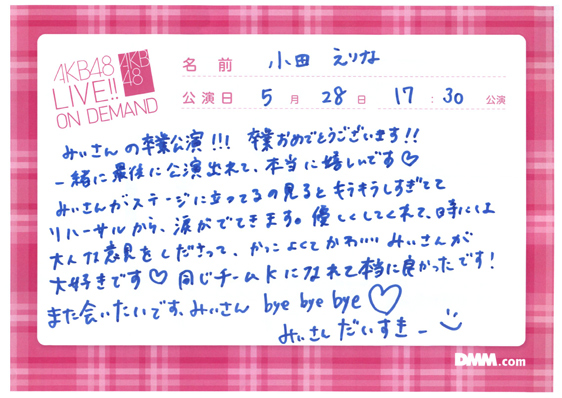 AKB48
LIVE!!
ON DEMAND
AKB
48
名前 小田 えりな
公演日 5月28日 17:30公演
みぃさんの卒業公演!!! 卒業おめでとうございます!!
一緒に最後に公演出れて、本当に嬉しいです♡
みぃさんがステージに立ってるの見るとキラキラしすぎてて
リハーサルから、涙がでてきます。優しくしてくれて、時には
大人な意見をくださって、かっこよくてかわいい みぃさんが
大好きです♡ 同じチームKになれて本当に良かったです!
また会いたいです、みぃさん bye bye bye ♡
みぃさんだいすきー
DMM.com